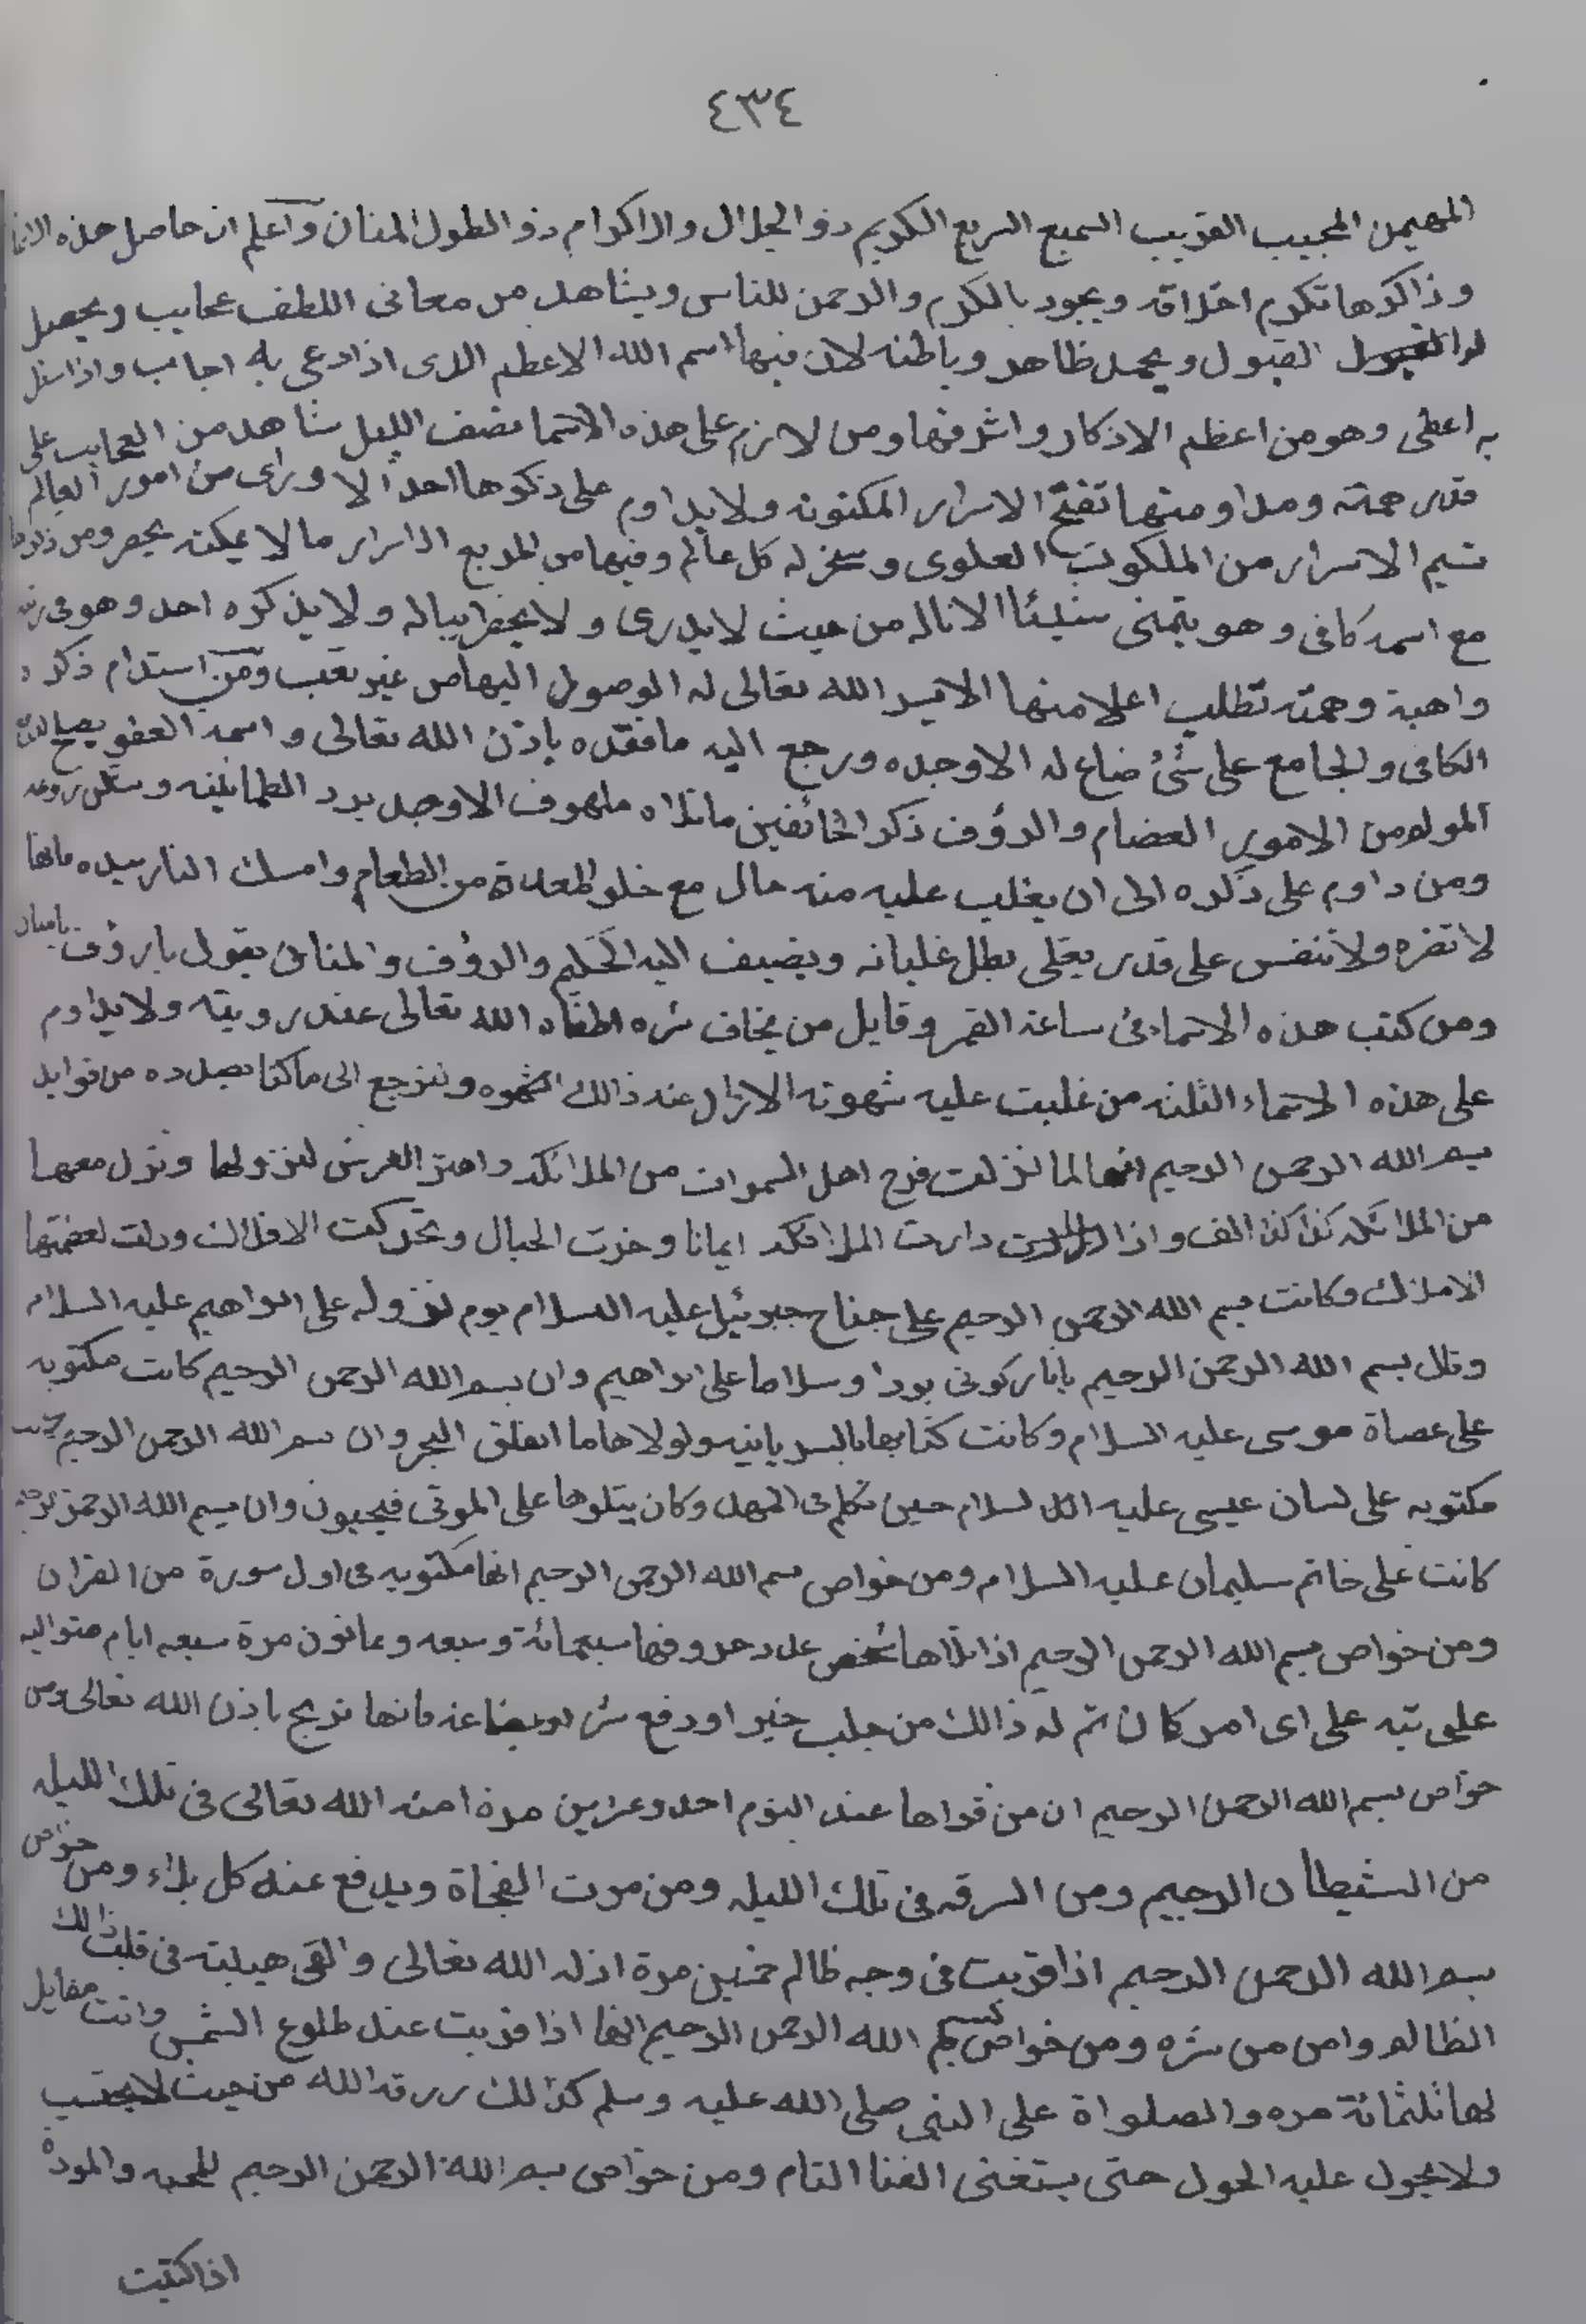 ٤٣٤
المهيمن المجيب القريب السميع السريع الكريم ذو الجلال والاكرام ذو الطول المنان واعلم ان حاصل هذه الاسما
وذاكرها تكرم اخلاقه ويجود بالكرم والرحمن للناس ويشاهد من معانى اللطف عجايب ويحصل
له القبول ويجمل ظاهره وباطنه لان فيها اسم الله الاعظم الذى اذا دعى به اجاب واذا سئل
به اعطى وهو من اعظم الاذكار واشرفها ومن لازم على هذه الاسما نصف الليل شاهد من العجايب على
قدر همته ومداومتها تفتح الاسرار المكنونه ولا يداوم على ذكرها احدا الا وراى من امور العالم
نسيم الاسرار من الملكوت العلوى وسخر له كل عالم وفيها من البديع الاسرار ما لا يمكنه بحصر ومن ذكرها
مع اسمه كافى وهو يتمنى شيئا الا ناله من حيث لا يدرى ولا يخطر بباله ولا يذكره احد وهو فى
واهبة وهمته تطلب اعلا منها الا يسر الله تعالى له الوصول اليها من غير تعب ومن استدام ذكره
الكافى والجامع على شئ ضاع له الا وجده ورجع اليه ما فقده باذن الله تعالى واسمه العفو يصلح
المولد من الامور العضام والرؤف ذكر الخائفين ما تلاه ملهوف الا وجد برد الطمانينه وسكن روعه
ومن داوم على ذكره الى ان يغلب عليه منه حال مع خلو المعدة من الطعام وامسك النار بيده فانها
لا تضره ولا تنفس على قدر يغلى بطل غليانه ويضيف اليه الحليم والرؤف والمنان يقول يا رؤف يا منان
ومن كتب هذه الاسماء فى ساعة القمر وقابل من يخاف شره اطفاه الله تعالى عند رويته ولا يداوم
على هذه الاسماء الثلثه من غلبت عليه شهوته الا زال عند ذالك الشهوه ونرجع الى ما كنا بصدده من فوايد
بسم الله الرحمن الرحيم انها لما نزلت فرح اهل السموات من الملائكه واهتز العرش لنزولها ونزل معها
من الملائكه كذا كذا الف واذا دارت الملائكه ايمانا وخرت الجبال وتحركت الافلاك وذلت لعضمتها
الاملاك وكانت بسم الله الرحمن الرحيم على جناح جبرئيل عليه السلام يوم نزوله على ابراهيم عليه السلام
وقال بسم الله الرحمن الرحيم يانار كونى بردا وسلاما على ابراهيم وان بسم الله الرحمن الرحيم كانت مكتوبه
على عصاة موسى عليه السلام وكانت كتابها بالسريانيه ولولاها ما انفلق البحر وان بسم الله الرحمن الرحيم كانت
مكتوبه على لسان عيسى عليه السلام حين تكلم فى المهد وكان يتلوها على الموتى فيحيون وان بسم الله الرحمن الرحيم
كانت على خاتم سليمان عليه السلام ومن خواص بسم الله الرحمن الرحيم انها مكتوبه فى اول سورة من القران
ومن خواص بسم الله الرحمن الرحيم اذا تلاها شخص عدد حروفها سبعمائة وسبعه وثمانون مرة سبعه ايام متواليه
على نيه على اى امر كان تم له ذالك من جلب خير او دفع شر او بضاعه فانها تربح باذن الله تعالى ومن
خواص بسم الله الرحمن الرحيم ان من قراها عند النوم احد وعرين مرة امنه الله تعالى فى تلك الليله
من الشيطان الرجيم ومن السرقه فى تلك الليله ومن موت الفجاة ويدفع عنه كل بلاء ومن خواص
بسم الله الرحمن الرحيم اذا قريت فى وجه ظالم خمسين مرة اذله الله تعالى والقى هيبته فى قلب ذالك
الظالم وامن من شره ومن خواص بسم الله الرحمن الرحيم انها اذا قريت عند طلوع الشمس وانت مقابل
لها ثلثمائة مره والصلواة على النبى صلى الله عليه وسلم كذالك رزقه الله من حيث لا يحتسب
ولا يحول عليه الحول حتى يستغنى الغنا التام ومن خواص بسم الله الرحمن الرحيم للمحبه والمودة
اذا كتبت